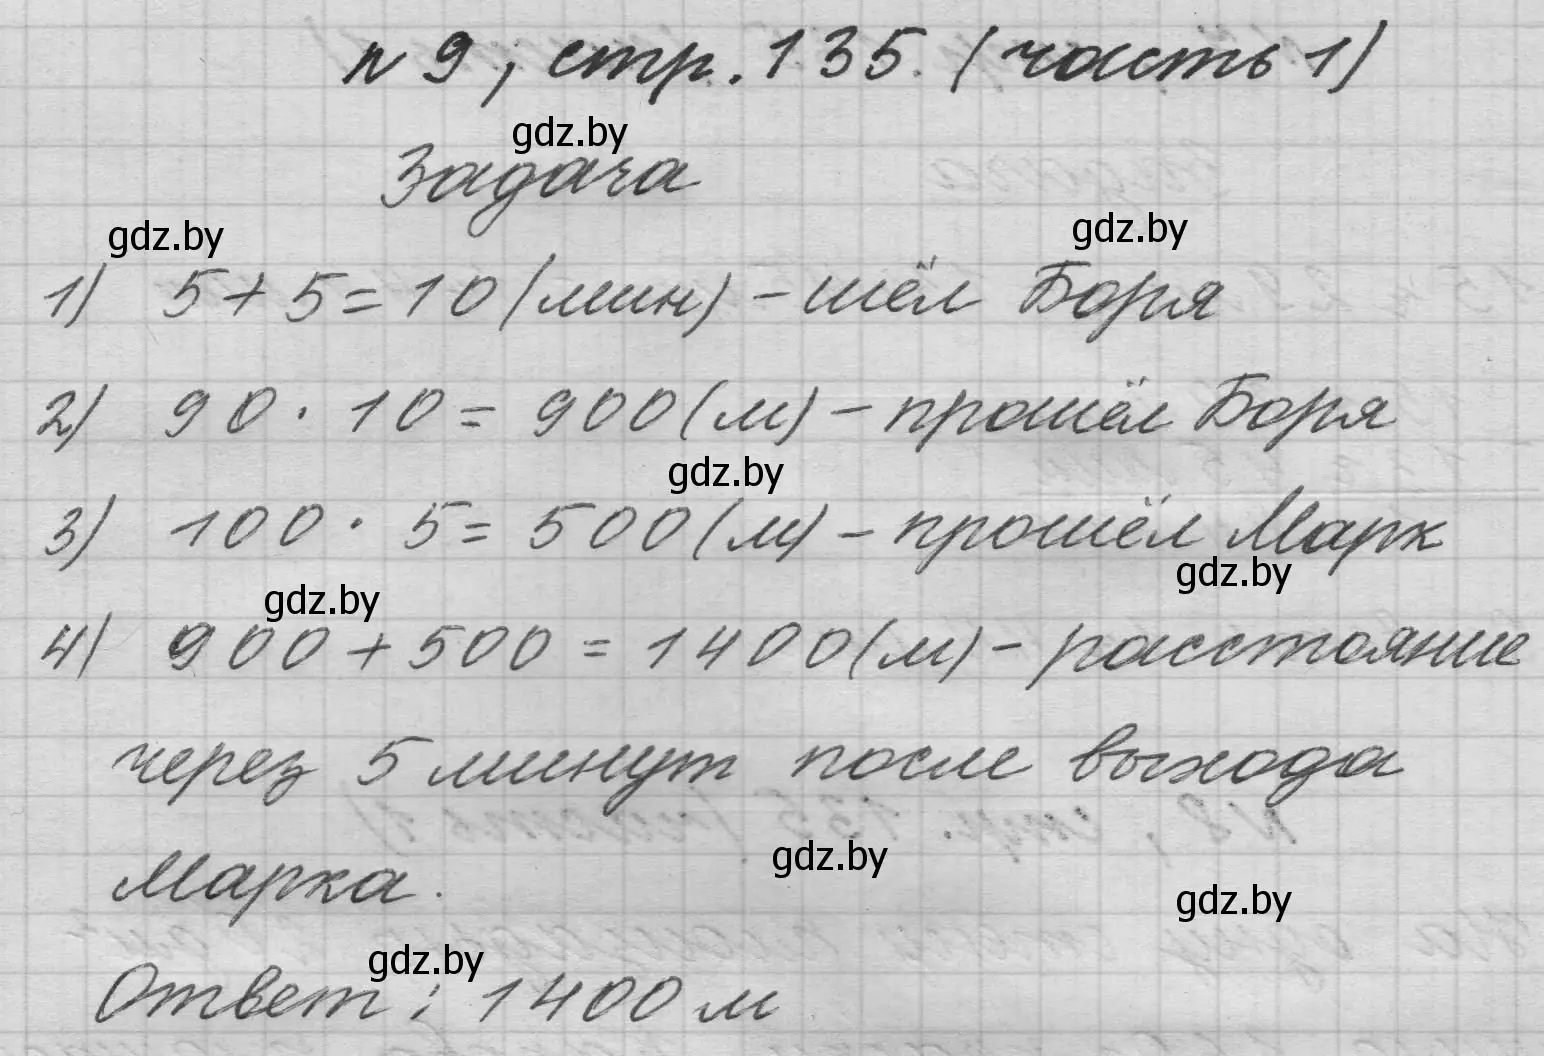 n 9, стр. 135. (часть 1)
gdz.by
Задача
gdz.by
gdz.by
1) 5 + 5 = 10 (мин) - шёл Боря
2) 90 · 10 = 900 (м) - прошёл Боря
gdz.by
3) 100 · 5 = 500 (м) - прошёл Марк
gdz.by
gdz.by
4) 900 + 500 = 1400 (м) - расстояние
через 5 минут после выхода
gdz.by
Марка.
gdz.by
gdz.by
Ответ: 1400 м